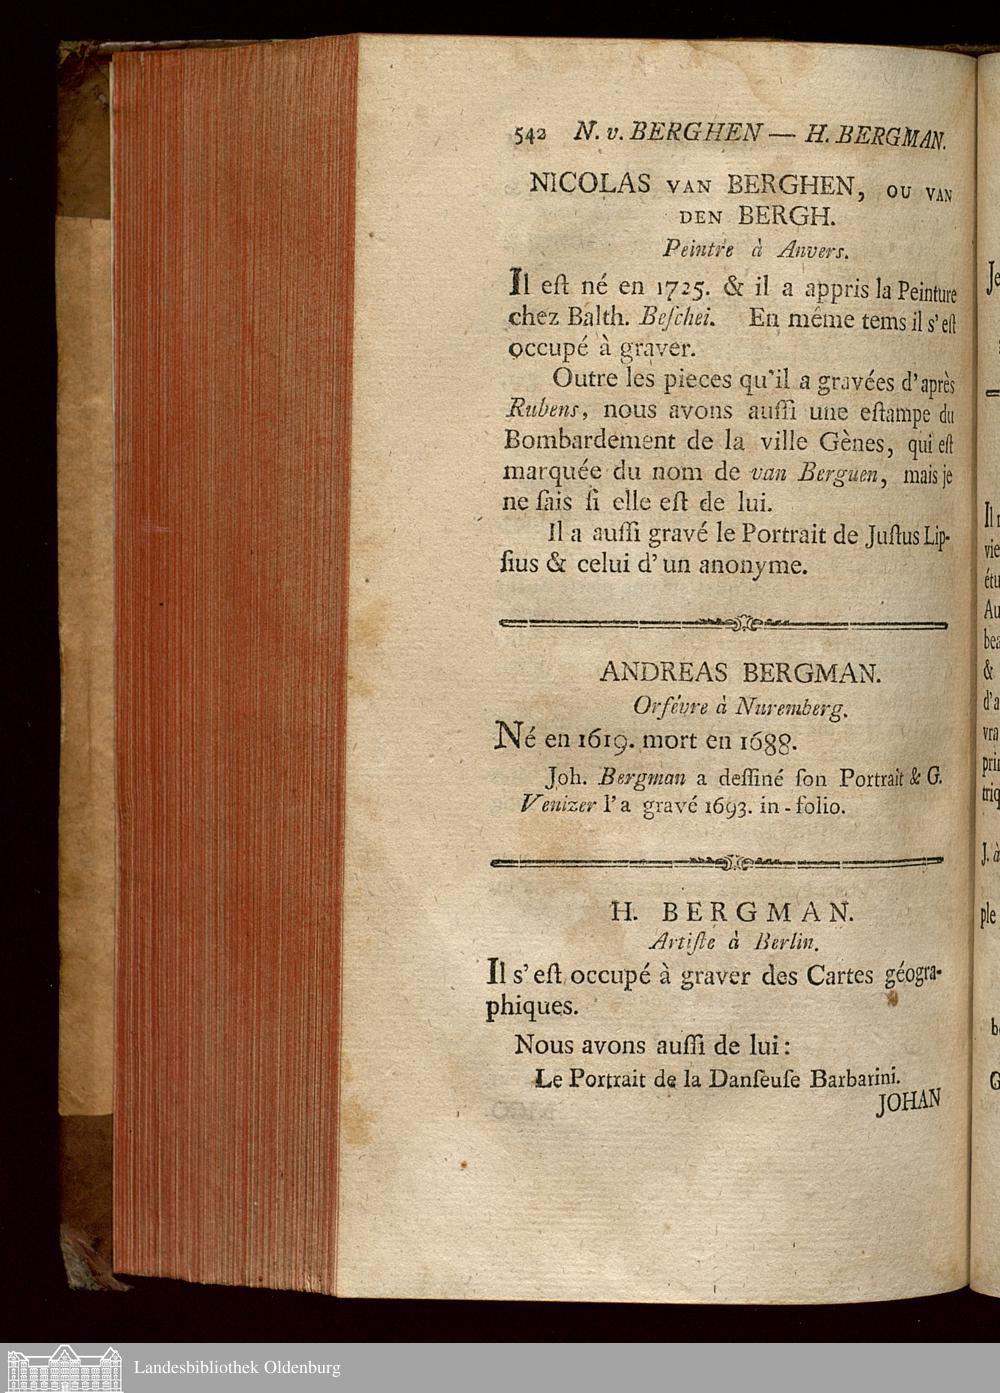 542 N. v. BERGHEN — H. BERGMAN.
NICOLAS VAN BERGHEN, OU VAN
DEN BERGH.
Peintre à Anvers.
Il eſt né en 1725. & il a appris la Peinture
chez Balth. Beſchei. En même tems il s'eſt
occupé à graver.
Outre les pieces qu'il a gravées d'après
Rubens, nous avons auſſi une eſtampe du
Bombardement de la ville Gènes, qui eſt
marquée du nom de van Berguen, mais je
ne ſais ſi elle eſt de lui.
Il a auſſi gravé le Portrait de Juſtus Lip-
ſius & celui d'un anonyme.
ANDREAS BERGMAN.
Orfévre à Nuremberg.
Né en 1619. mort en 1688.
Joh. Bergman a deſſiné ſon Portrait & G.
Venizer l'a gravé 1693. in-folio.
H. BERGMAN.
Artiſte à Berlin.
Il s'eſt occupé à graver des Cartes géogra-
phiques.
Nous avons auſſi de lui:
Le Portrait de la Danſeuſe Barbarini.
JOHAN
Landesbibliothek Oldenburg